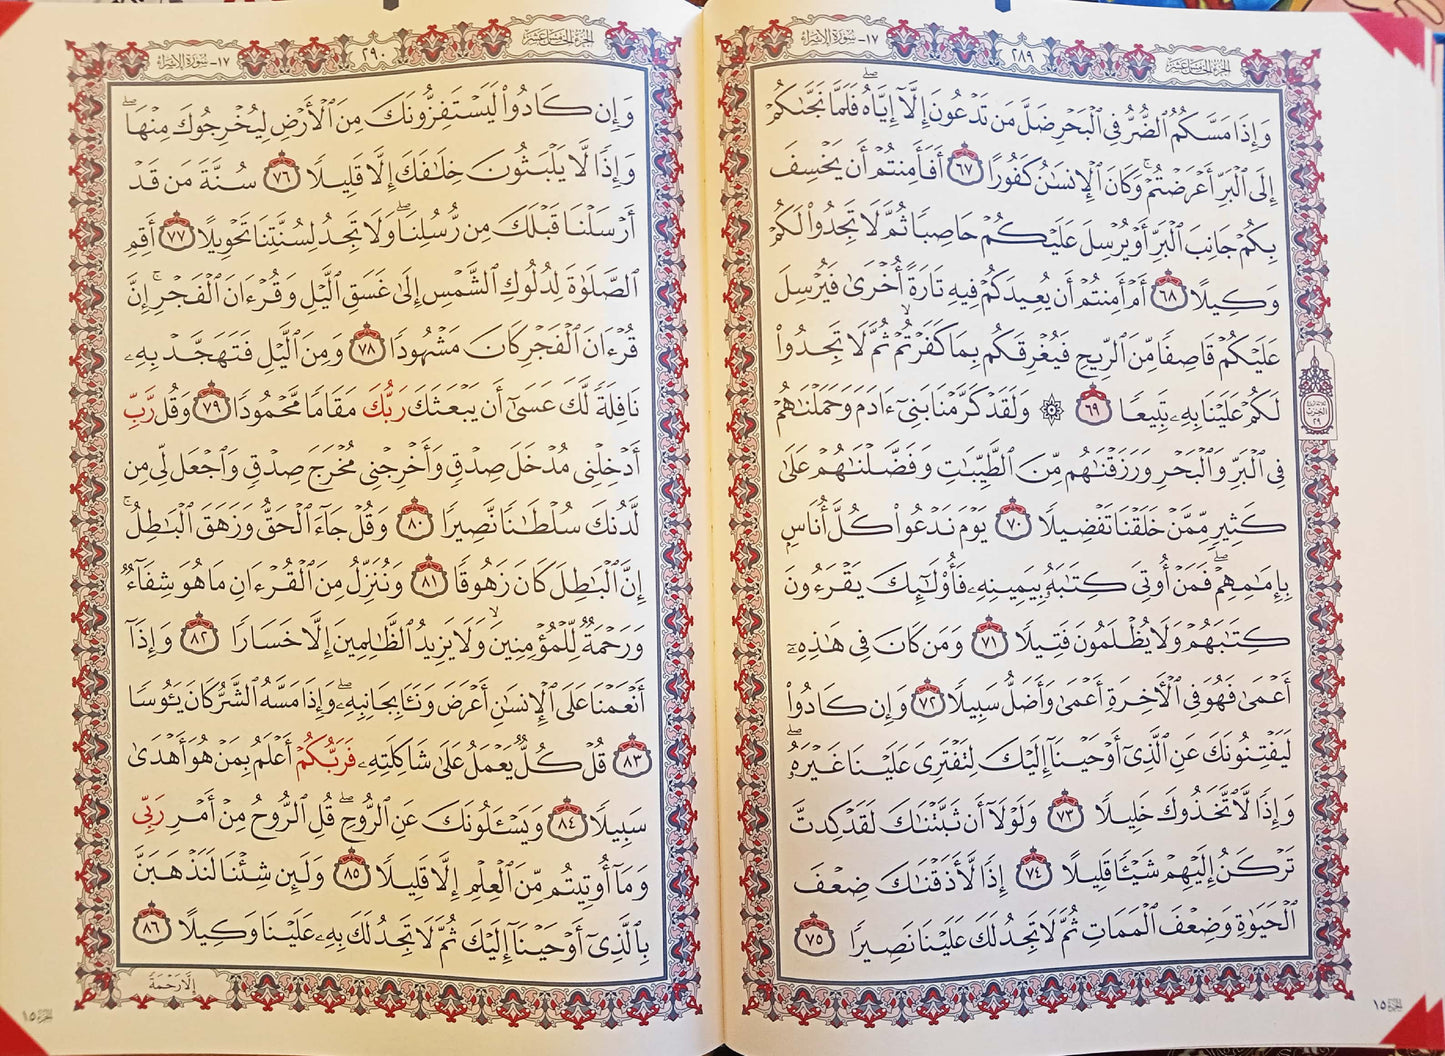 ١٧- سُورَةُ الإِسْرَاءِ
٢٨٩
الجُزْءُ الخَامِسَ عَشَرَ
وَإِذَا مَسَّكُمُ ٱلضُّرُّ فِى ٱلْبَحْرِ ضَلَّ مَن تَدْعُونَ إِلَّآ إِيَّاهُ ۖ فَلَمَّا نَجَّىٰكُمْ
إِلَى ٱلْبَرِّ أَعْرَضْتُمْ ۚ وَكَانَ ٱلْإِنسَٰنُ كَفُورًا ٦٧ أَفَأَمِنتُمْ أَن يَخْسِفَ
بِكُمْ جَانِبَ ٱلْبَرِّ أَوْ يُرْسِلَ عَلَيْكُمْ حَاصِبًا ثُمَّ لَا تَجِدُوا۟ لَكُمْ
وَكِيلًا ٦٨ أَمْ أَمِنتُمْ أَن يُعِيدَكُمْ فِيهِ تَارَةً أُخْرَىٰ فَيُرْسِلَ
عَلَيْكُمْ قَاصِفًا مِّنَ ٱلرِّيحِ فَيُغْرِقَكُم بِمَا كَفَرْتُمْ ۙ ثُمَّ لَا تَجِدُوا۟
لَكُمْ عَلَيْنَا بِهِۦ تَبِيعًا ٦٩ ۞ وَلَقَدْ كَرَّمْنَا بَنِىٓ ءَادَمَ وَحَمَلْنَٰهُمْ
فِى ٱلْبَرِّ وَٱلْبَحْرِ وَرَزَقْنَٰهُم مِّنَ ٱلطَّيِّبَٰتِ وَفَضَّلْنَٰهُمْ عَلَىٰ
كَثِيرٍ مِّمَّنْ خَلَقْنَا تَفْضِيلًا ٧٠ يَوْمَ نَدْعُوا۟ كُلَّ أُنَاسٍۭ
بِإِمَٰمِهِمْ ۖ فَمَنْ أُوتِىَ كِتَٰبَهُۥ بِيَمِينِهِۦ فَأُو۟لَٰٓئِكَ يَقْرَءُونَ
كِتَٰبَهُمْ وَلَا يُظْلَمُونَ فَتِيلًا ٧١ وَمَن كَانَ فِى هَٰذِهِۦٓ
أَعْمَىٰ فَهُوَ فِى ٱلْءَاخِرَةِ أَعْمَىٰ وَأَضَلُّ سَبِيلًا ٧٢ وَإِن كَادُوا۟
لَيَفْتِنُونَكَ عَنِ ٱلَّذِىٓ أَوْحَيْنَآ إِلَيْكَ لِتَفْتَرِىَ عَلَيْنَا غَيْرَهُۥ ۖ
وَإِذًا لَّٱتَّخَذُوكَ خَلِيلًا ٧٣ وَلَوْلَآ أَن ثَبَّتْنَٰكَ لَقَدْ كِدتَّ
تَرْكَنُ إِلَيْهِمْ شَيْـًٔا قَلِيلًا ٧٤ إِذًا لَّأَذَقْنَٰكَ ضِعْفَ
ٱلْحَيَوٰةِ وَضِعْفَ ٱلْمَمَاتِ ثُمَّ لَا تَجِدُ لَكَ عَلَيْنَا نَصِيرًا ٧٥
الحِزْبُ
٢٩
الجُزْءُ ١٥
١٧- سُورَةُ الإِسْرَاءِ
٢٩٠
الجُزْءُ الخَامِسَ عَشَرَ
وَإِن كَادُوا۟ لَيَسْتَفِزُّونَكَ مِنَ ٱلْأَرْضِ لِيُخْرِجُوكَ مِنْهَا ۖ
وَإِذًا لَّا يَلْبَثُونَ خِلَٰفَكَ إِلَّا قَلِيلًا ٧٦ سُنَّةَ مَن قَدْ
أَرْسَلْنَا قَبْلَكَ مِن رُّسُلِنَا ۖ وَلَا تَجِدُ لِسُنَّتِنَا تَحْوِيلًا ٧٧ أَقِمِ
ٱلصَّلَوٰةَ لِدُلُوكِ ٱلشَّمْسِ إِلَىٰ غَسَقِ ٱلَّيْلِ وَقُرْءَانَ ٱلْفَجْرِ ۖ إِنَّ
قُرْءَانَ ٱلْفَجْرِ كَانَ مَشْهُودًا ٧٨ وَمِنَ ٱلَّيْلِ فَتَهَجَّدْ بِهِۦ
نَافِلَةً لَّكَ عَسَىٰٓ أَن يَبْعَثَكَ رَبُّكَ مَقَامًا مَّحْمُودًا ٧٩ وَقُل رَّبِّ
أَدْخِلْنِى مُدْخَلَ صِدْقٍ وَأَخْرِجْنِى مُخْرَجَ صِدْقٍ وَٱجْعَل لِّى مِن
لَّدُنكَ سُلْطَٰنًا نَّصِيرًا ٨٠ وَقُلْ جَآءَ ٱلْحَقُّ وَزَهَقَ ٱلْبَٰطِلُ ۚ
إِنَّ ٱلْبَٰطِلَ كَانَ زَهُوقًا ٨١ وَنُنَزِّلُ مِنَ ٱلْقُرْءَانِ مَا هُوَ شِفَآءٌ
وَرَحْمَةٌ لِّلْمُؤْمِنِينَ ۙ وَلَا يَزِيدُ ٱلظَّٰلِمِينَ إِلَّا خَسَارًا ٨٢ وَإِذَآ
أَنْعَمْنَا عَلَى ٱلْإِنسَٰنِ أَعْرَضَ وَنَـَٔا بِجَانِبِهِۦ ۖ وَإِذَا مَسَّهُ ٱلشَّرُّ كَانَ يَـُٔوسًا
٨٣ قُلْ كُلٌّ يَعْمَلُ عَلَىٰ شَاكِلَتِهِۦ فَرَبُّكُمْ أَعْلَمُ بِمَنْ هُوَ أَهْدَىٰ
سَبِيلًا ٨٤ وَيَسْـَٔلُونَكَ عَنِ ٱلرُّوحِ ۖ قُلِ ٱلرُّوحُ مِنْ أَمْرِ رَبِّى
وَمَآ أُوتِيتُم مِّنَ ٱلْعِلْمِ إِلَّا قَلِيلًا ٨٥ وَلَئِن شِئْنَا لَنَذْهَبَنَّ
بِٱلَّذِىٓ أَوْحَيْنَآ إِلَيْكَ ثُمَّ لَا تَجِدُ لَكَ بِهِۦ عَلَيْنَا وَكِيلًا ٨٦
إِلَّا رَحْمَةً
الجُزْءُ ١٥